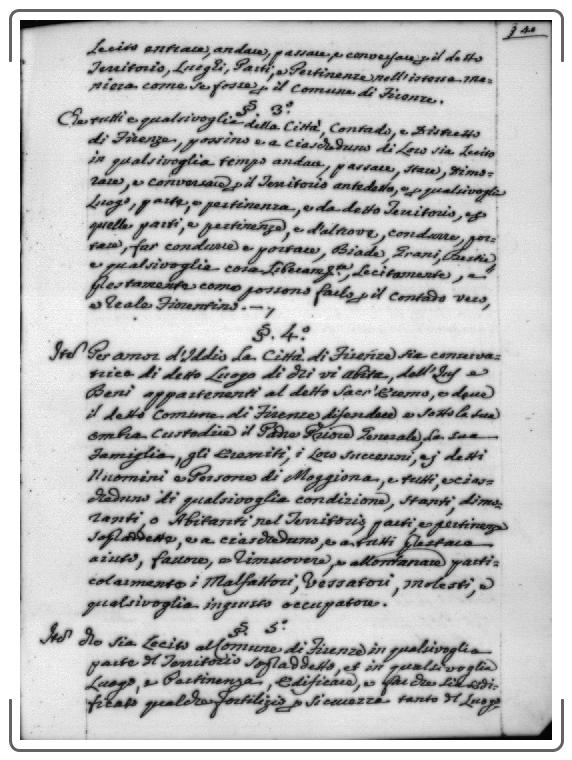 340
Lecito entrare, andare, passare, e conversare p il detto
Territorio, Luoghi, Parti, e Pertinenze nell'istessa ma-
niera come se fosse p il Comune di Firenze.
§. 3.º
Che tutti e qualsivoglia della Città, Contado, e Distretto
di Firenze, possino e a ciascheduno di Loro sia Lecito
in qualsivoglia tempo andare, passare, stare, dimo-
rare, e conversare p il Territorio antedetto, e p qualsivoglia
Luogo, parte, e pertinenza, e da detto Territorio, e
quelle parti, e pertinenze, e d'altrove, condurre, por-
tare, far condurre e portare, Biade, Grani, Bestie
e qualsivoglia cosa Liberam.te, Lecitamente, e
prestamente come possono farlo p il Contado vero,
e Reale Fiorentino.
§. 4.º
Ite Per amor d'Iddio La Città di Firenze sia conserva-
trice di detto Luogo di chi vi abita, dell'Jus e
Beni appartenenti al detto Sacr'Eremo, e deve
il detto Comune di Firenze difendere e sotto la sua
ombra Custodire il Padre Priore Generale, La sua
Famiglia, gli Eremiti, i Loro successori, e i detti
Huomini e Persone di Moggiona, e tutti, e cias-
cheduno di qualsivoglia condizione, stanti, dimo-
ranti, o Abitanti nel Territorio, parti, e pertinenze
sopraddette, e a ciascheduno, e a tutti Prestare
aiuto, favore, e rimuovere, e allontanare parti-
colarmente i Malfattori, Vessatori, molesti, e
qualsivoglia ingiusto occupatore.
§. 5.º
Ite che sia Lecito al Comune di Firenze in qualsivoglia
parte del Territorio sopraddetto, et in qualsivoglia
Luogo, e Pertinenza, Edificare, e far che sia edi-
ficato qualche fortilizio p sicurezza tanto del Luogo